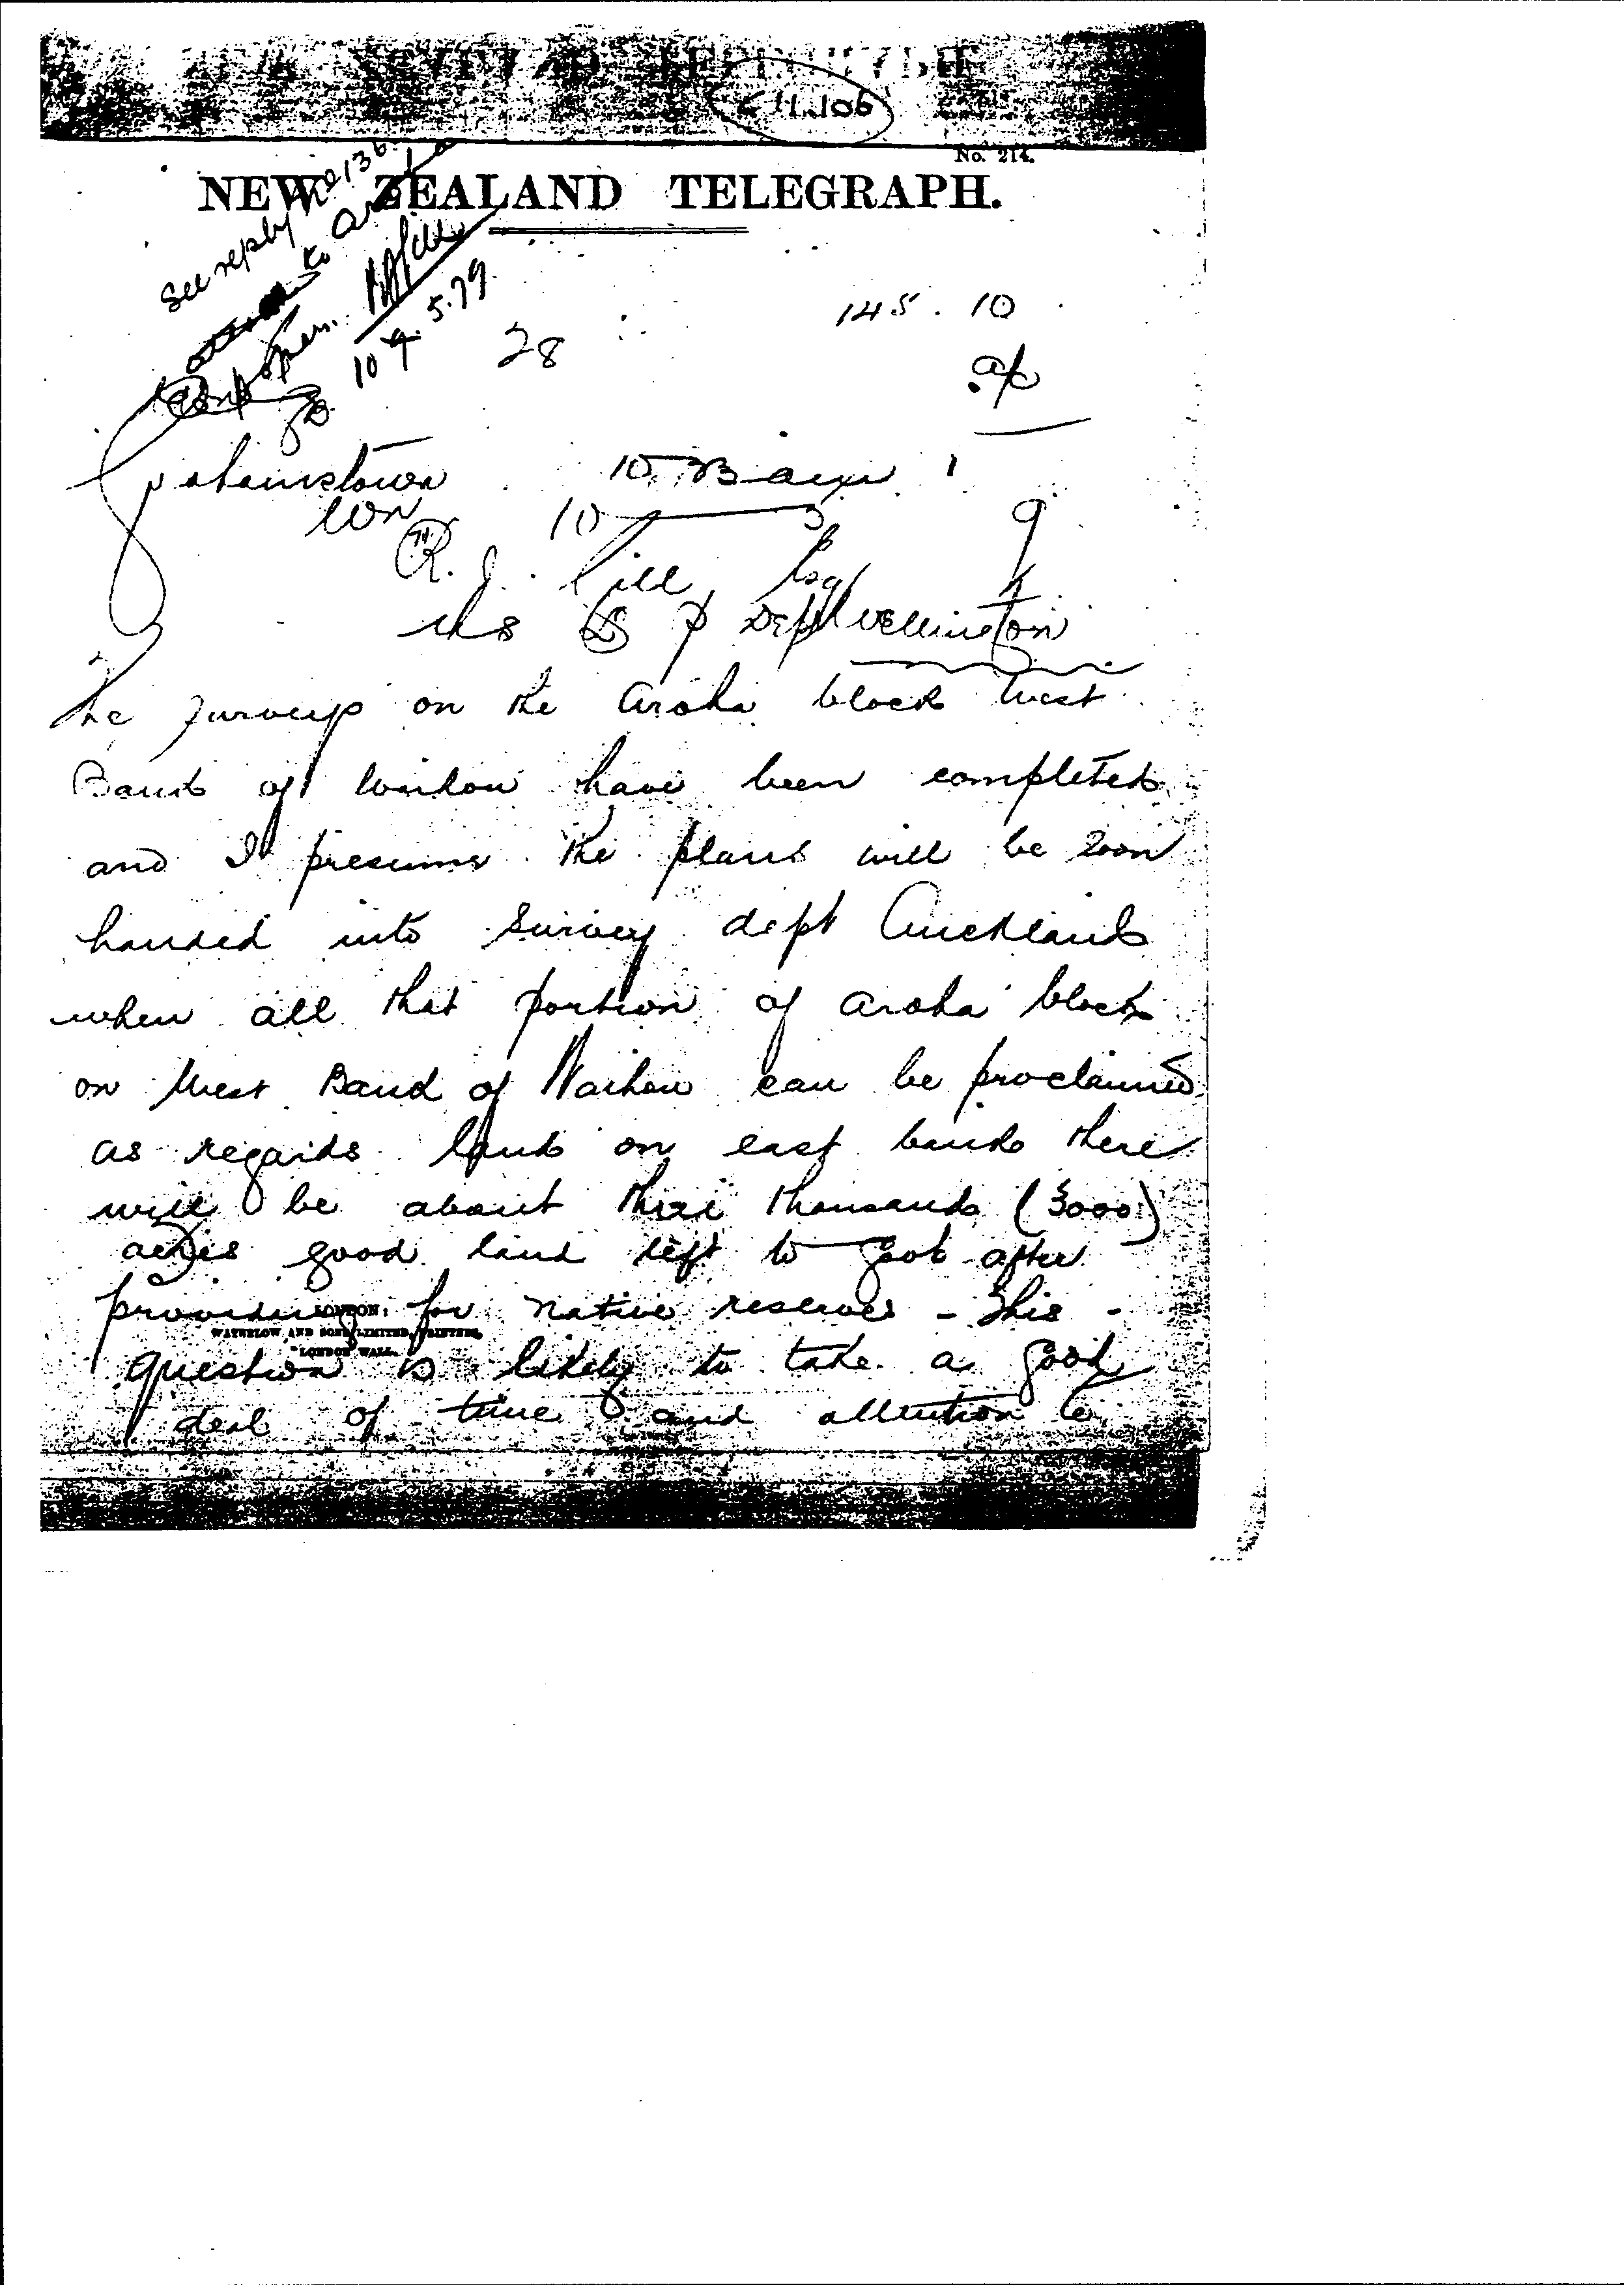 11.106
No. 214.
NEW ZEALAND TELEGRAPH.
See reply No 136
to Aroha
open.
10 5.79.
28
145. 10
Grahamstown 10
10
R. J. Gill Esq
Dept Wellington
The surveys on the Aroha block West
Bank of Waihou have been completed
and I presume the plans will be soon
handed into Survey dept Auckland
when all that portion of Aroha block
on West Bank of Waihou can be proclaimed
as regards land on east bank there
will be about three thousand (3000)
acres good land left to Govt after
providing for native reserves - This -
LONDON:
WATERLOW AND SONS LIMITED, PRINTERS,
LONDON WALL.
question is likely to take a good
deal of time and attention to